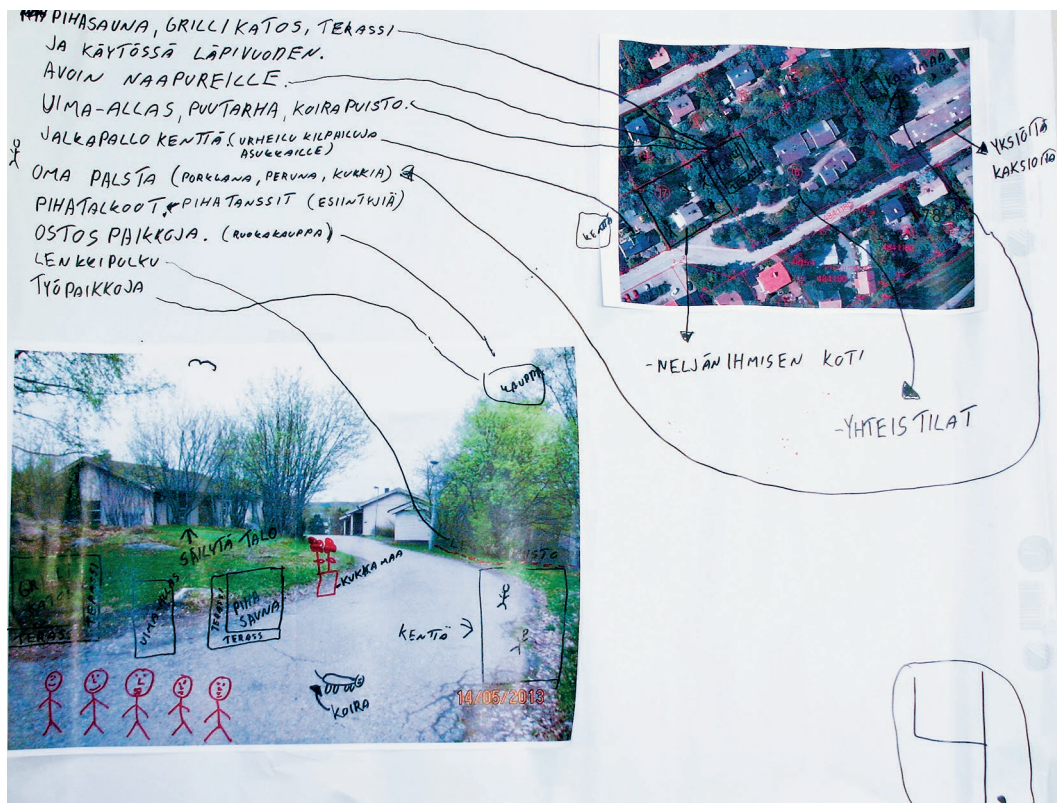 PIHASAUNA, GRILLIKATOS, TERASSI
JA KÄYTÖSSÄ LÄPIVUODEN.
AVOIN NAAPUREILLE.
UIMA-ALLAS, PUUTARHA, KOIRAPUISTO.
JALKAPALLO KENTTÄ (URHEILU KILPAILUJA
ASUKKAILLE)
OMA PALSTA (PORKKANA, PERUNA, KUKKIA)
PIHATALKOOT, PIHATANSSIT (ESIINTYJIÄ)
OSTOS PAIKKOJA. (RUOKAKAUPPA)
LENKKIPOLKU
TYÖPAIKKOJA
KASIMAA
YKSIÖITÄ
KAKSIOITA
KENTÄ
-NELJÄN IHMISEN KOTI
-YHTEISTILAT
KAUPPA
SÄILYTÄ TALO
KUKKAMAA
PUISTO
TERASSI
TERASS
UIMA-ALLAS
TERASSI
PIHA
SAUNA
TERASS
KENTTÄ
KOIRA
14/05/2013
4